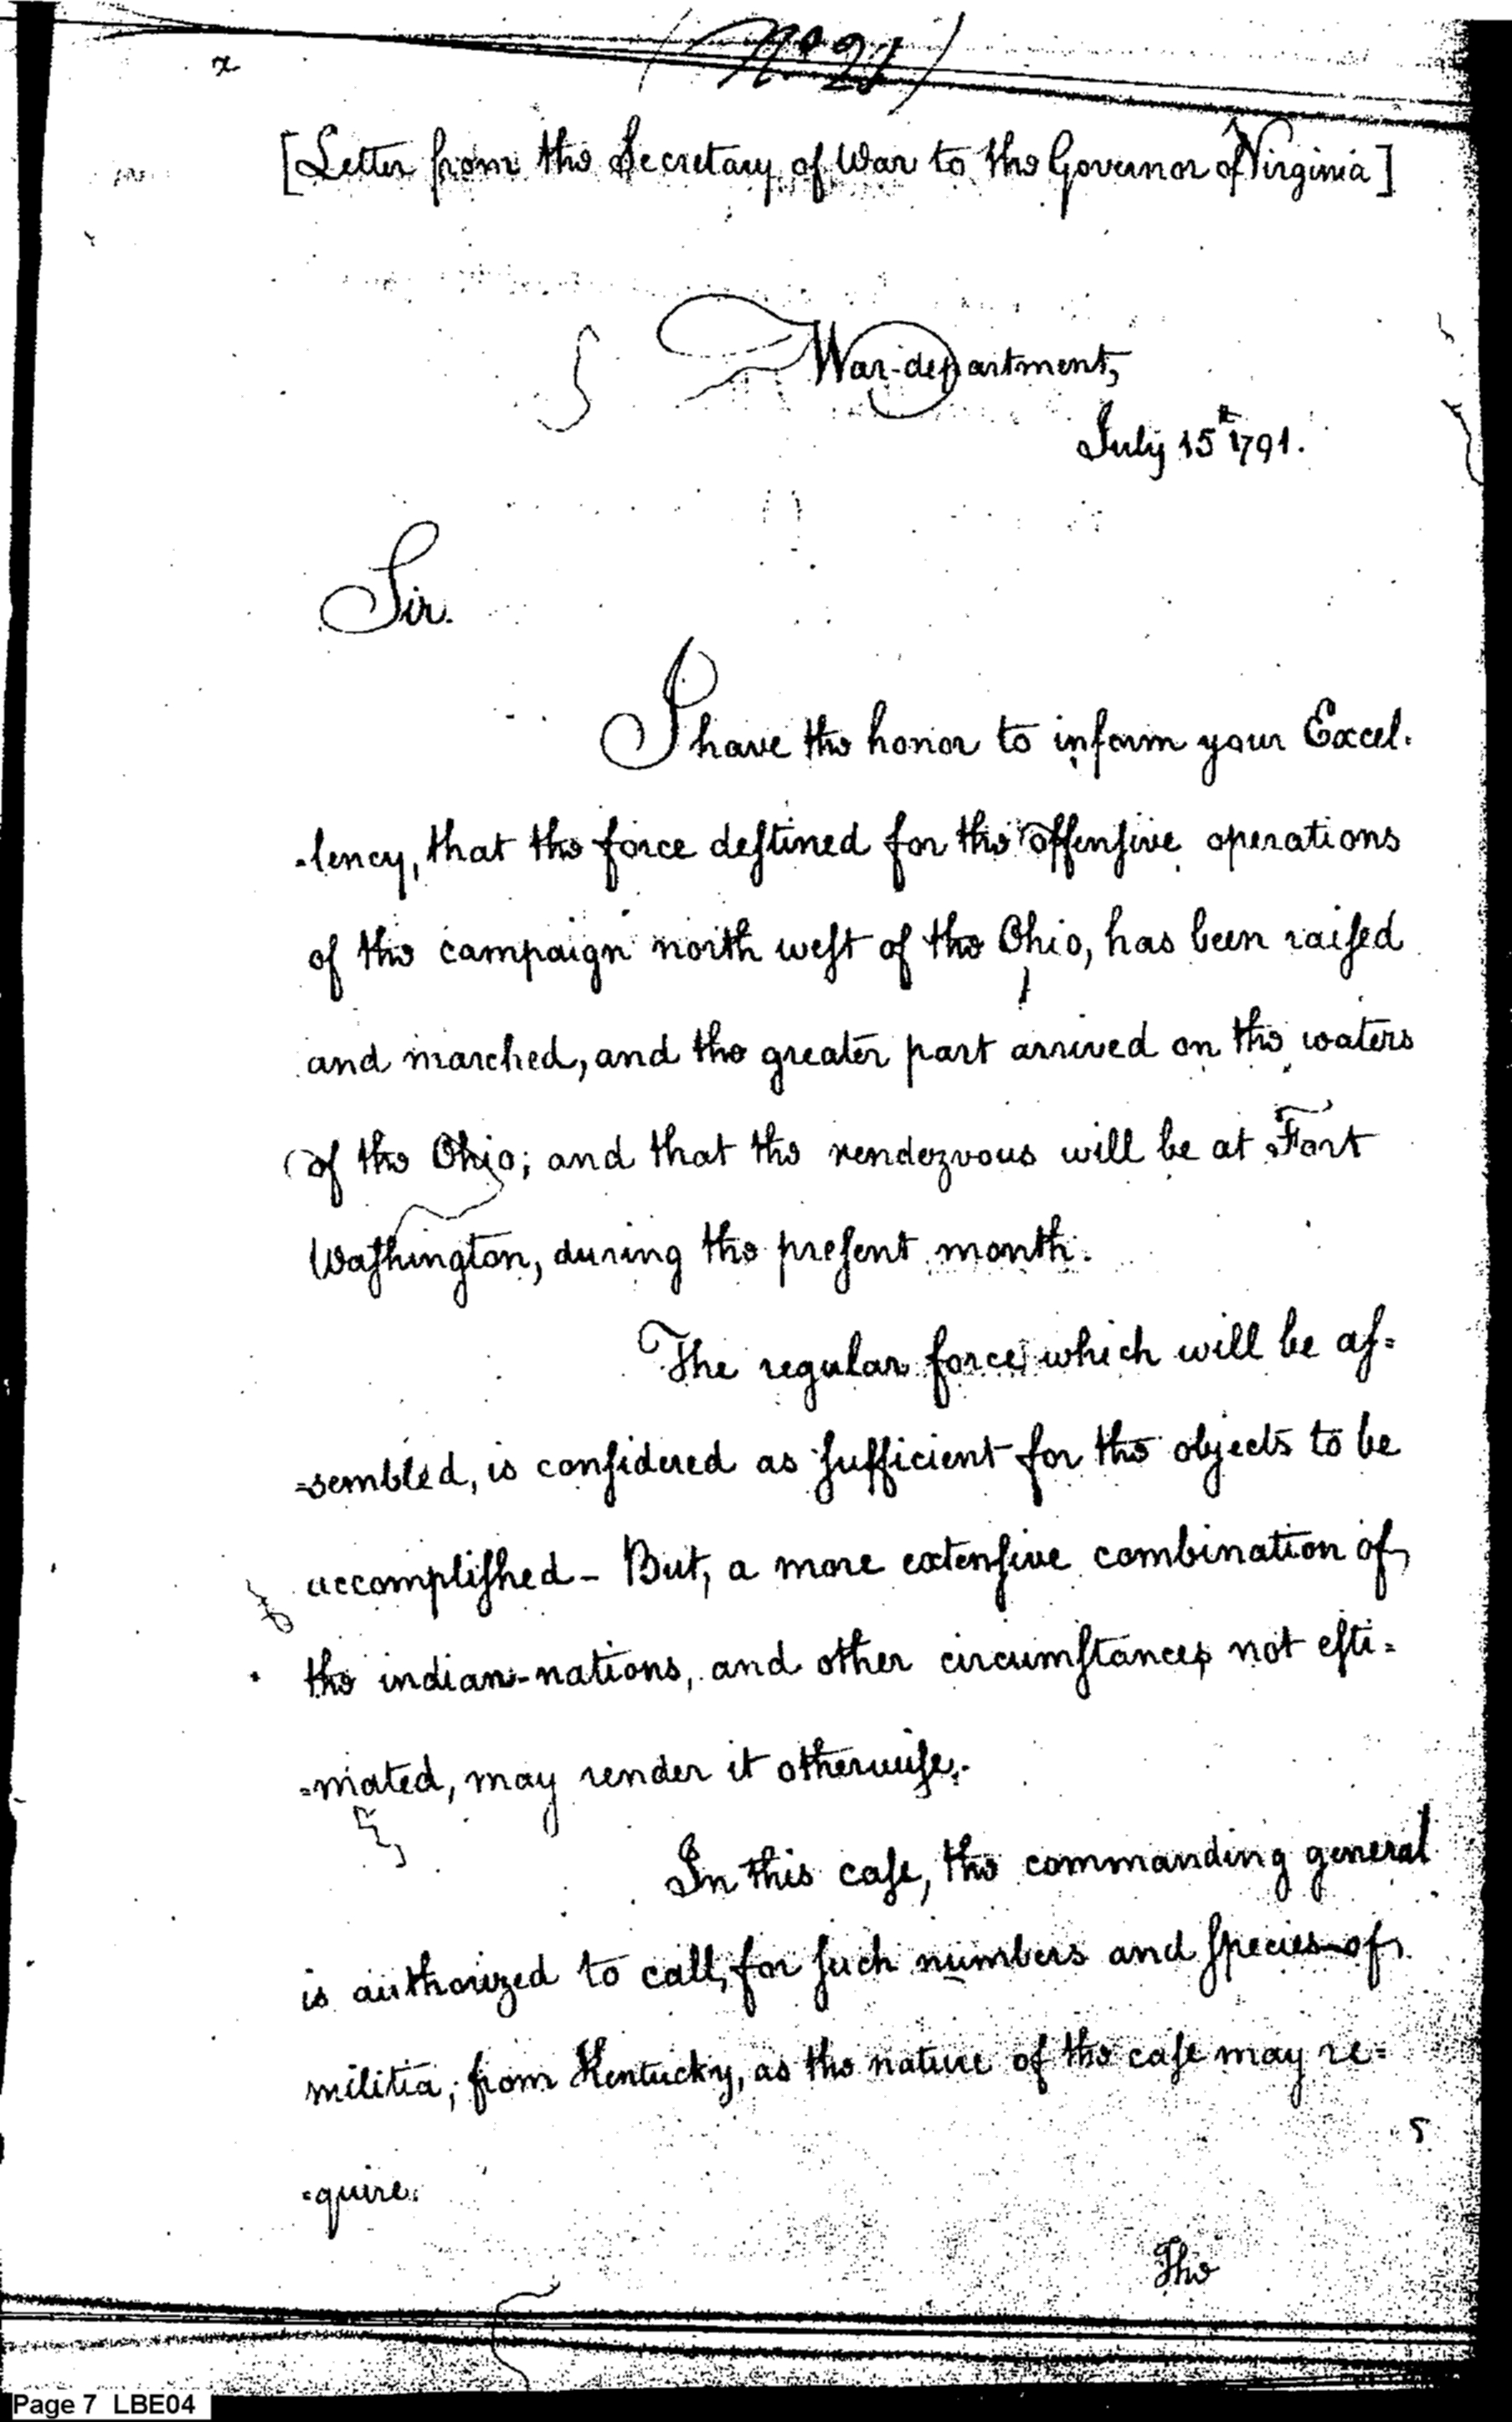 (No 21)
[Letter from the Secretary of War to the Governor of Virginia]
War-department,
July 15th 1791.
Sir.
I have the honor to inform your Excel-
-lency, that the force deſtined for the offenſive operations
of the campaign north weſt of the Ohio, has been raiſed
and marched, and the greater part arrived on the waters
of the Ohio; and that the rendezvous will be at Fort
Waſhington, during the preſent month.
The regular force which will be aſ=
=sembled, is conſidered as ſufficient for the objects to be
accompliſhed - But, a more extenſive combination of
the indian-nations, and other circumſtances not eſti=
=mated, may render it otherwiſe.
In this caſe, the commanding general
is authorized to call, for ſuch numbers and ſpecies of
militia, from Kentucky, as the nature of the caſe may re=
=quire.
The
Page 7 LBE04